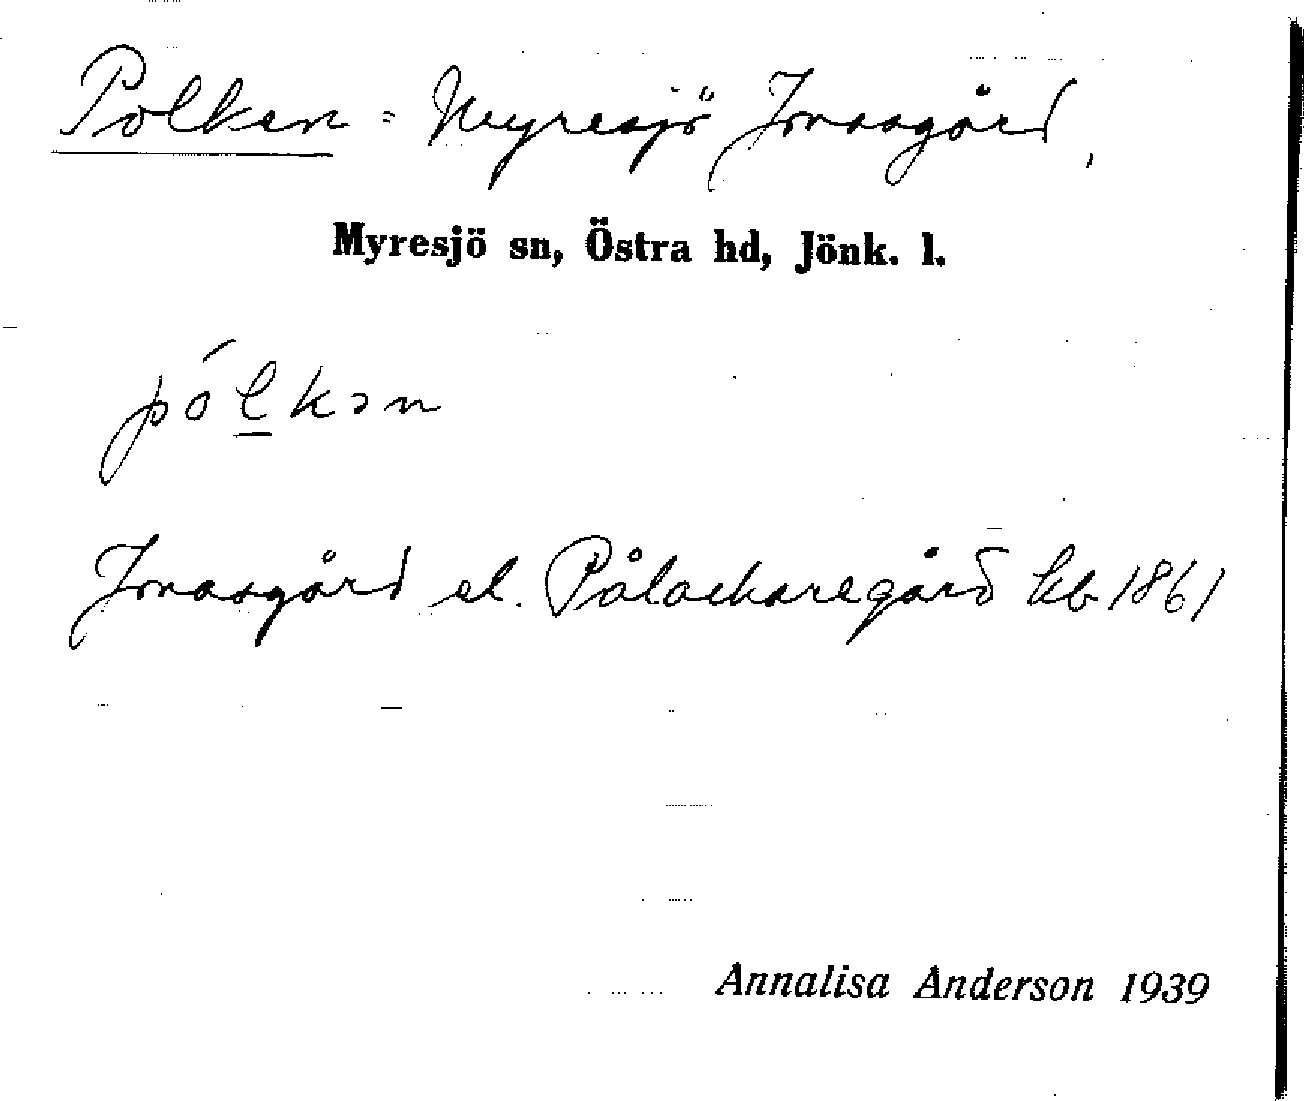 Polken = Myresjö Jonasgård,
Myresjö sn, Östra hd, Jönk. l.
pólkən
Jonasgård el. Pålackaregård kb 1861
Annalisa Anderson 1939